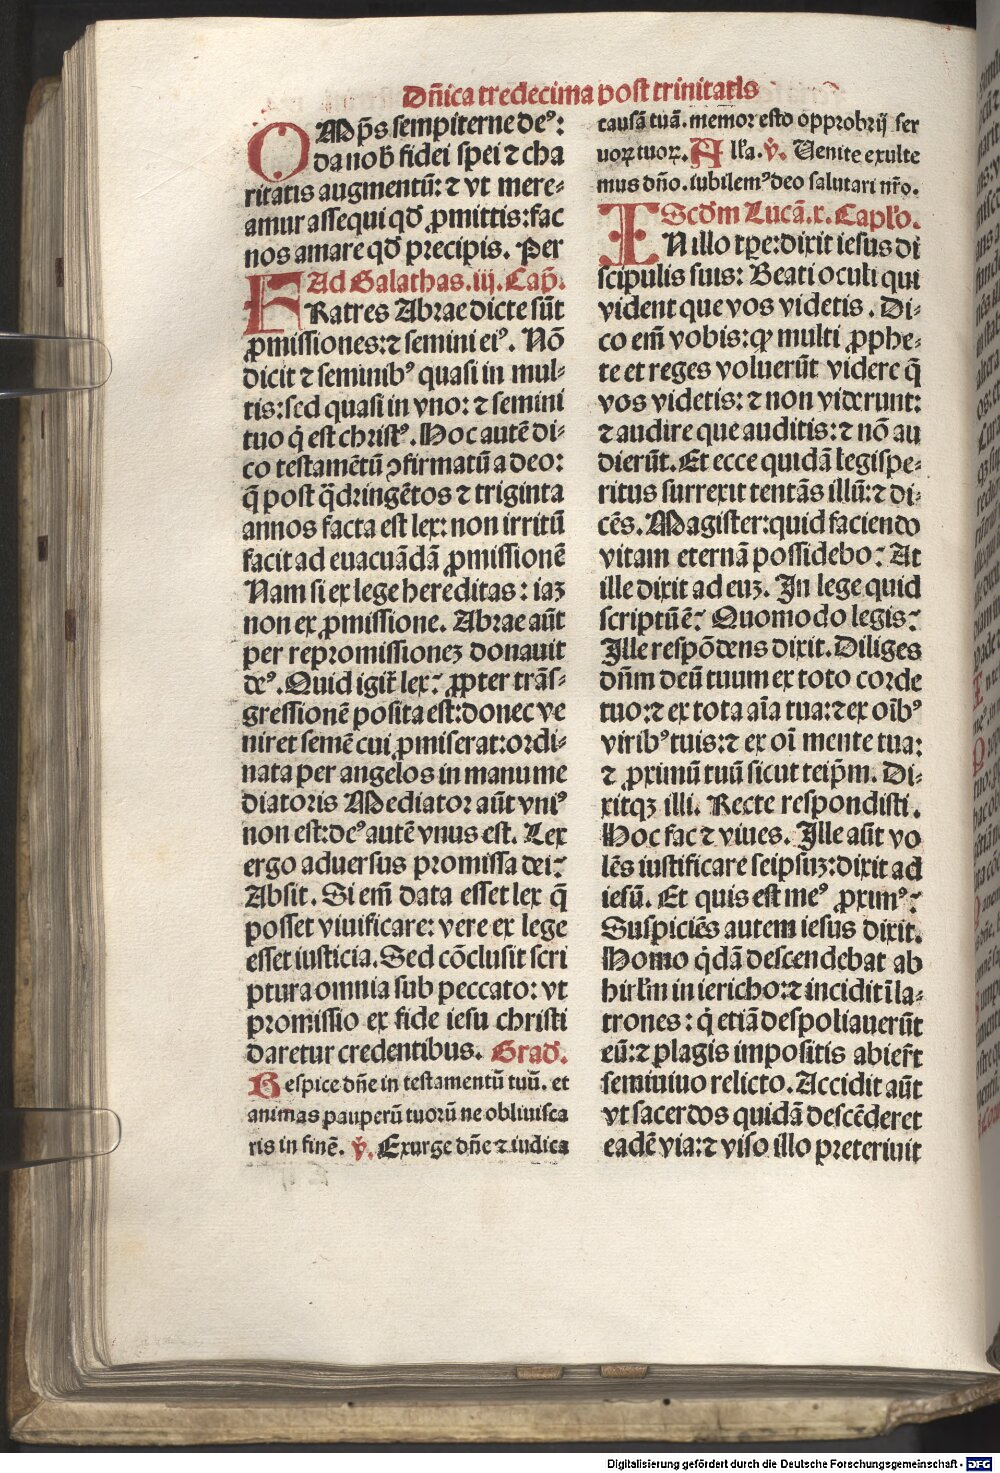 Dñica tredecima post trinitatis
OMp̄s sempiterne deꝰ:
da nob̄ fidei spei ⁊ cha
ritatis augmentū: ⁊ vt mere⸗
amur assequi qđ ꝓmittis: fac
nos amare qđ precipis. Per
Ad Galathas. iij. Cap̄.
FRatres Abrae dicte sūt
ꝓmissiones: ⁊ semini eiꝰ. Nō
dicit ⁊ seminibꝰ quasi in mul⸗
tis: sed quasi in vno: ⁊ semini
tuo q̇ est christꝰ. Hoc autē di⸗
co testamētū ꝯfirmatū a deo:
q̄ post q̄dringētos ⁊ triginta
annos facta est lex: non irritū
facit ad euacuādā ꝓmissionē
Nam si ex lege hereditas: iaꝫ
non ex ꝓmissione. Abrae aūt
per repromissioneꝫ donauit
deꝰ. Quid igit̄ lex? ꝓpter trās⸗
gressionē posita est: donec ve
niret semē cui ꝓmiserat: ordi⸗
nata per angelos in manu me
diatoris Mediator aūt vniꝰ
non est: deꝰ autē vnus est. Lex
ergo aduersus promissa dei?
Absit. Si em̄ data esset lex q̄
posset viuificare: vere ex lege
esset iusticia. Sed cōclusit scri
ptura omnia sub peccato: vt
promissio ex fide iesu christi
daretur credentibus. Grad.
Respice dñe in testamentū tuū. et
animas pauperū tuorū ne obliuisca
ris in finē. ℣. Exurge dñe ⁊ iudica
causā tuā. memor esto opprobrij ser
uoꝝ tuoꝝ. Alľa. ℣. Uenite exulte
mus dño. iubilemꝰ deo salutari nr̄o.
Scđm Lucā. x. Capľo.
IN illo tꝑe: dixit iesus di
scipulis suis: Beati oculi qui
vident que vos videtis. Di⸗
co em̄ vobis: ꝙ multi ꝓphe⸗
te et reges voluerūt videre q̄
vos videtis: ⁊ non viderunt:
⁊ audire que auditis: ⁊ nō au
dierūt. Et ecce quidā legispe⸗
ritus surrexit tentās illū: ⁊ di⸗
cēs. Magister: quid faciendo
vitam eternā possidebo? At
ille dixit ad euꝫ. In lege quid
scriptū ē? Quomodo legis?
Ille respōdens dixit. Diliges
dñm deū tuum ex toto corde
tuo: ⁊ ex tota aīa tua: ⁊ ex oībꝰ
viribꝰ tuis: ⁊ ex oī mente tua:
⁊ ꝓximū tuū sicut teip̄m. Di⸗
xitqꝫ illi. Recte respondisti.
Hoc fac ⁊ viues. Ille aūt vo
lēs iustificare seipsūꝫ: dixit ad
iesū. Et quis est meꝰ ꝓximꝰ?
Suspiciēs autem iesus dixit.
Homo q̇dā descendebat ab
hirľm in iericho: ⁊ incidit ī la⸗
trones: q̇ etiā despoliauerūt
eū: ⁊ plagis impositis abier̄t
seminiuo relicto. Accidit aūt
vt sacerdos quidā descēderet
eadē via: ⁊ viso illo preteriuit
Digitalisierung gefördert durch die Deutsche Forschungsgemeinschaft - DFG